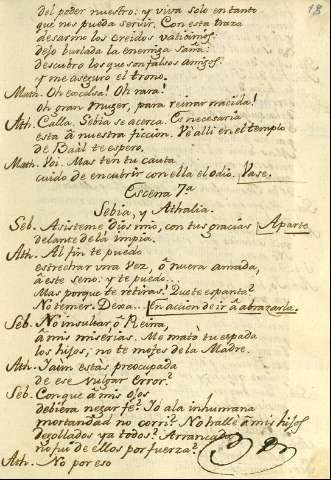 18
del poder nuestro: y viva solo en tanto
que nos pueda servir. Con esta traza
desarmo los creidos vaticinios:
dejo burlada la enemiga saña:
descubro los que son falsos amigos:
y me aseguro el trono.
Math. Oh excelsa! Oh rara!
oh gran Muger, para reinar nacida!
Ath. Calla. Sebia se acerca. Es necesaria
esta â nuestra ficcion. Vé alli en el templo
de Baàl te espero.
Math. Voi. Mas ten tu cauta
cuido de encubrir con ella el odio. Vase.
Escena 7ª
Sebia, y Athalia.
Seb. Asisteme Dios mio, con tus gracias Aparte
delante de la impia.
Ath. Al fin te puedo
estrechar una vez, ô nuera amada,
â este seno: y te puedo...
Mas porque te retiras? Que te espanta?
No temer. Dexa... En accion de ir â abrazarla.
Seb. No insultar ô Reina,
â mis miserias. Me mató tu espada
los hijos; no te mofes de la Madre.
Ath. Iaun estas preocupada
de ese vulgar error?
Seb. Con que â mis ojos
debiera negar fe? Yó ala inhumana
mortandad no corri? No hallè â mis hijos
degollados ya todos? Arrancada
no fui de ellos por fuerza?
Ath. No por eso